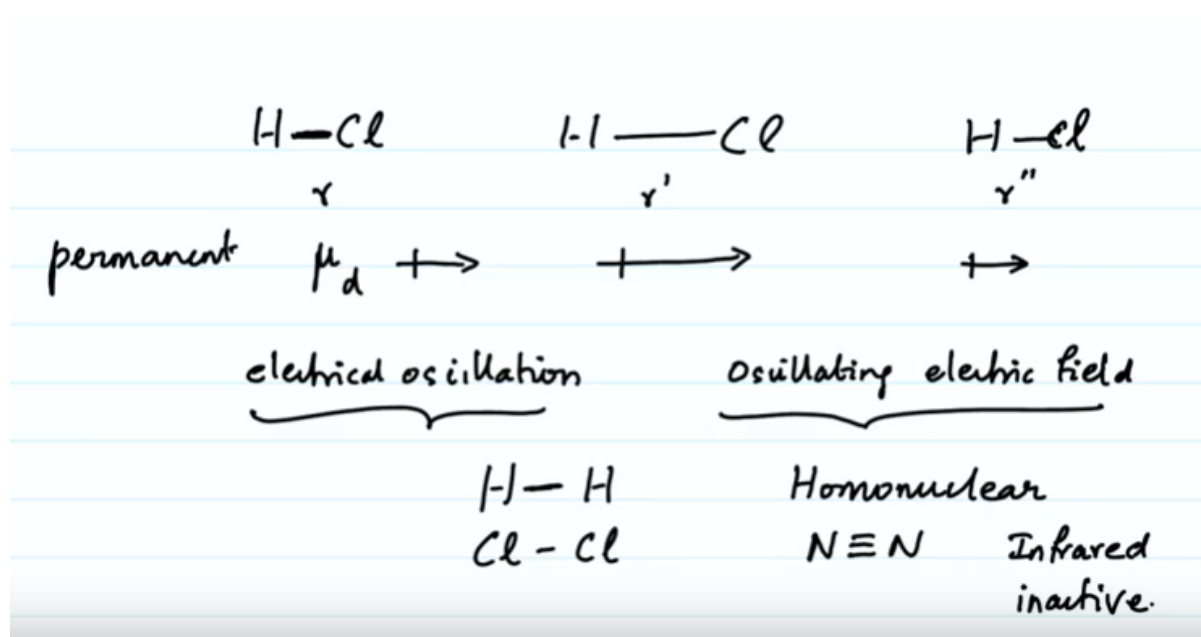 H—Cl H—Cl H—Cl
r r' r"
permanent μd
electrical oscillation Oscillating electric field
H—H Homonuclear
Cl - Cl N≡N Infrared
inactive.